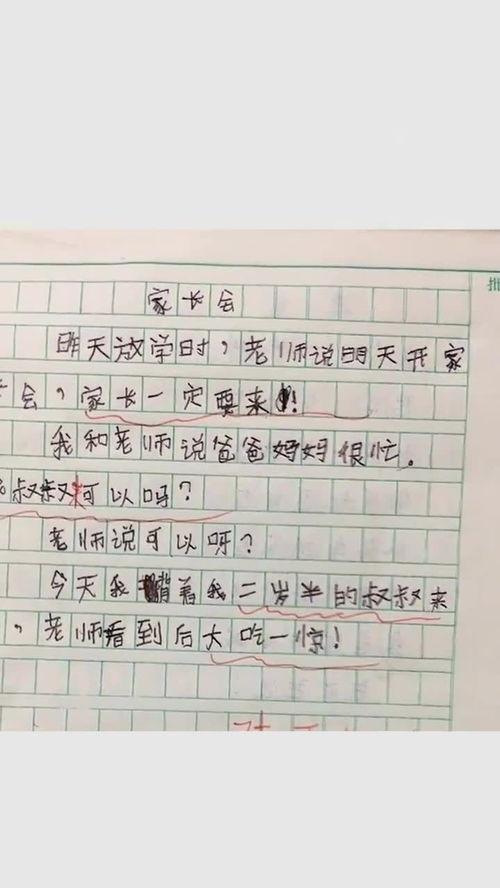 家长会
昨天放学时，老师说明天开家
会，家长一定要来！
我和老师说爸爸妈妈很忙。
叔叔来可以吗？
老师说可以呀？
今天我背着我二岁半的叔叔来
，老师看到后大吃一惊！
批